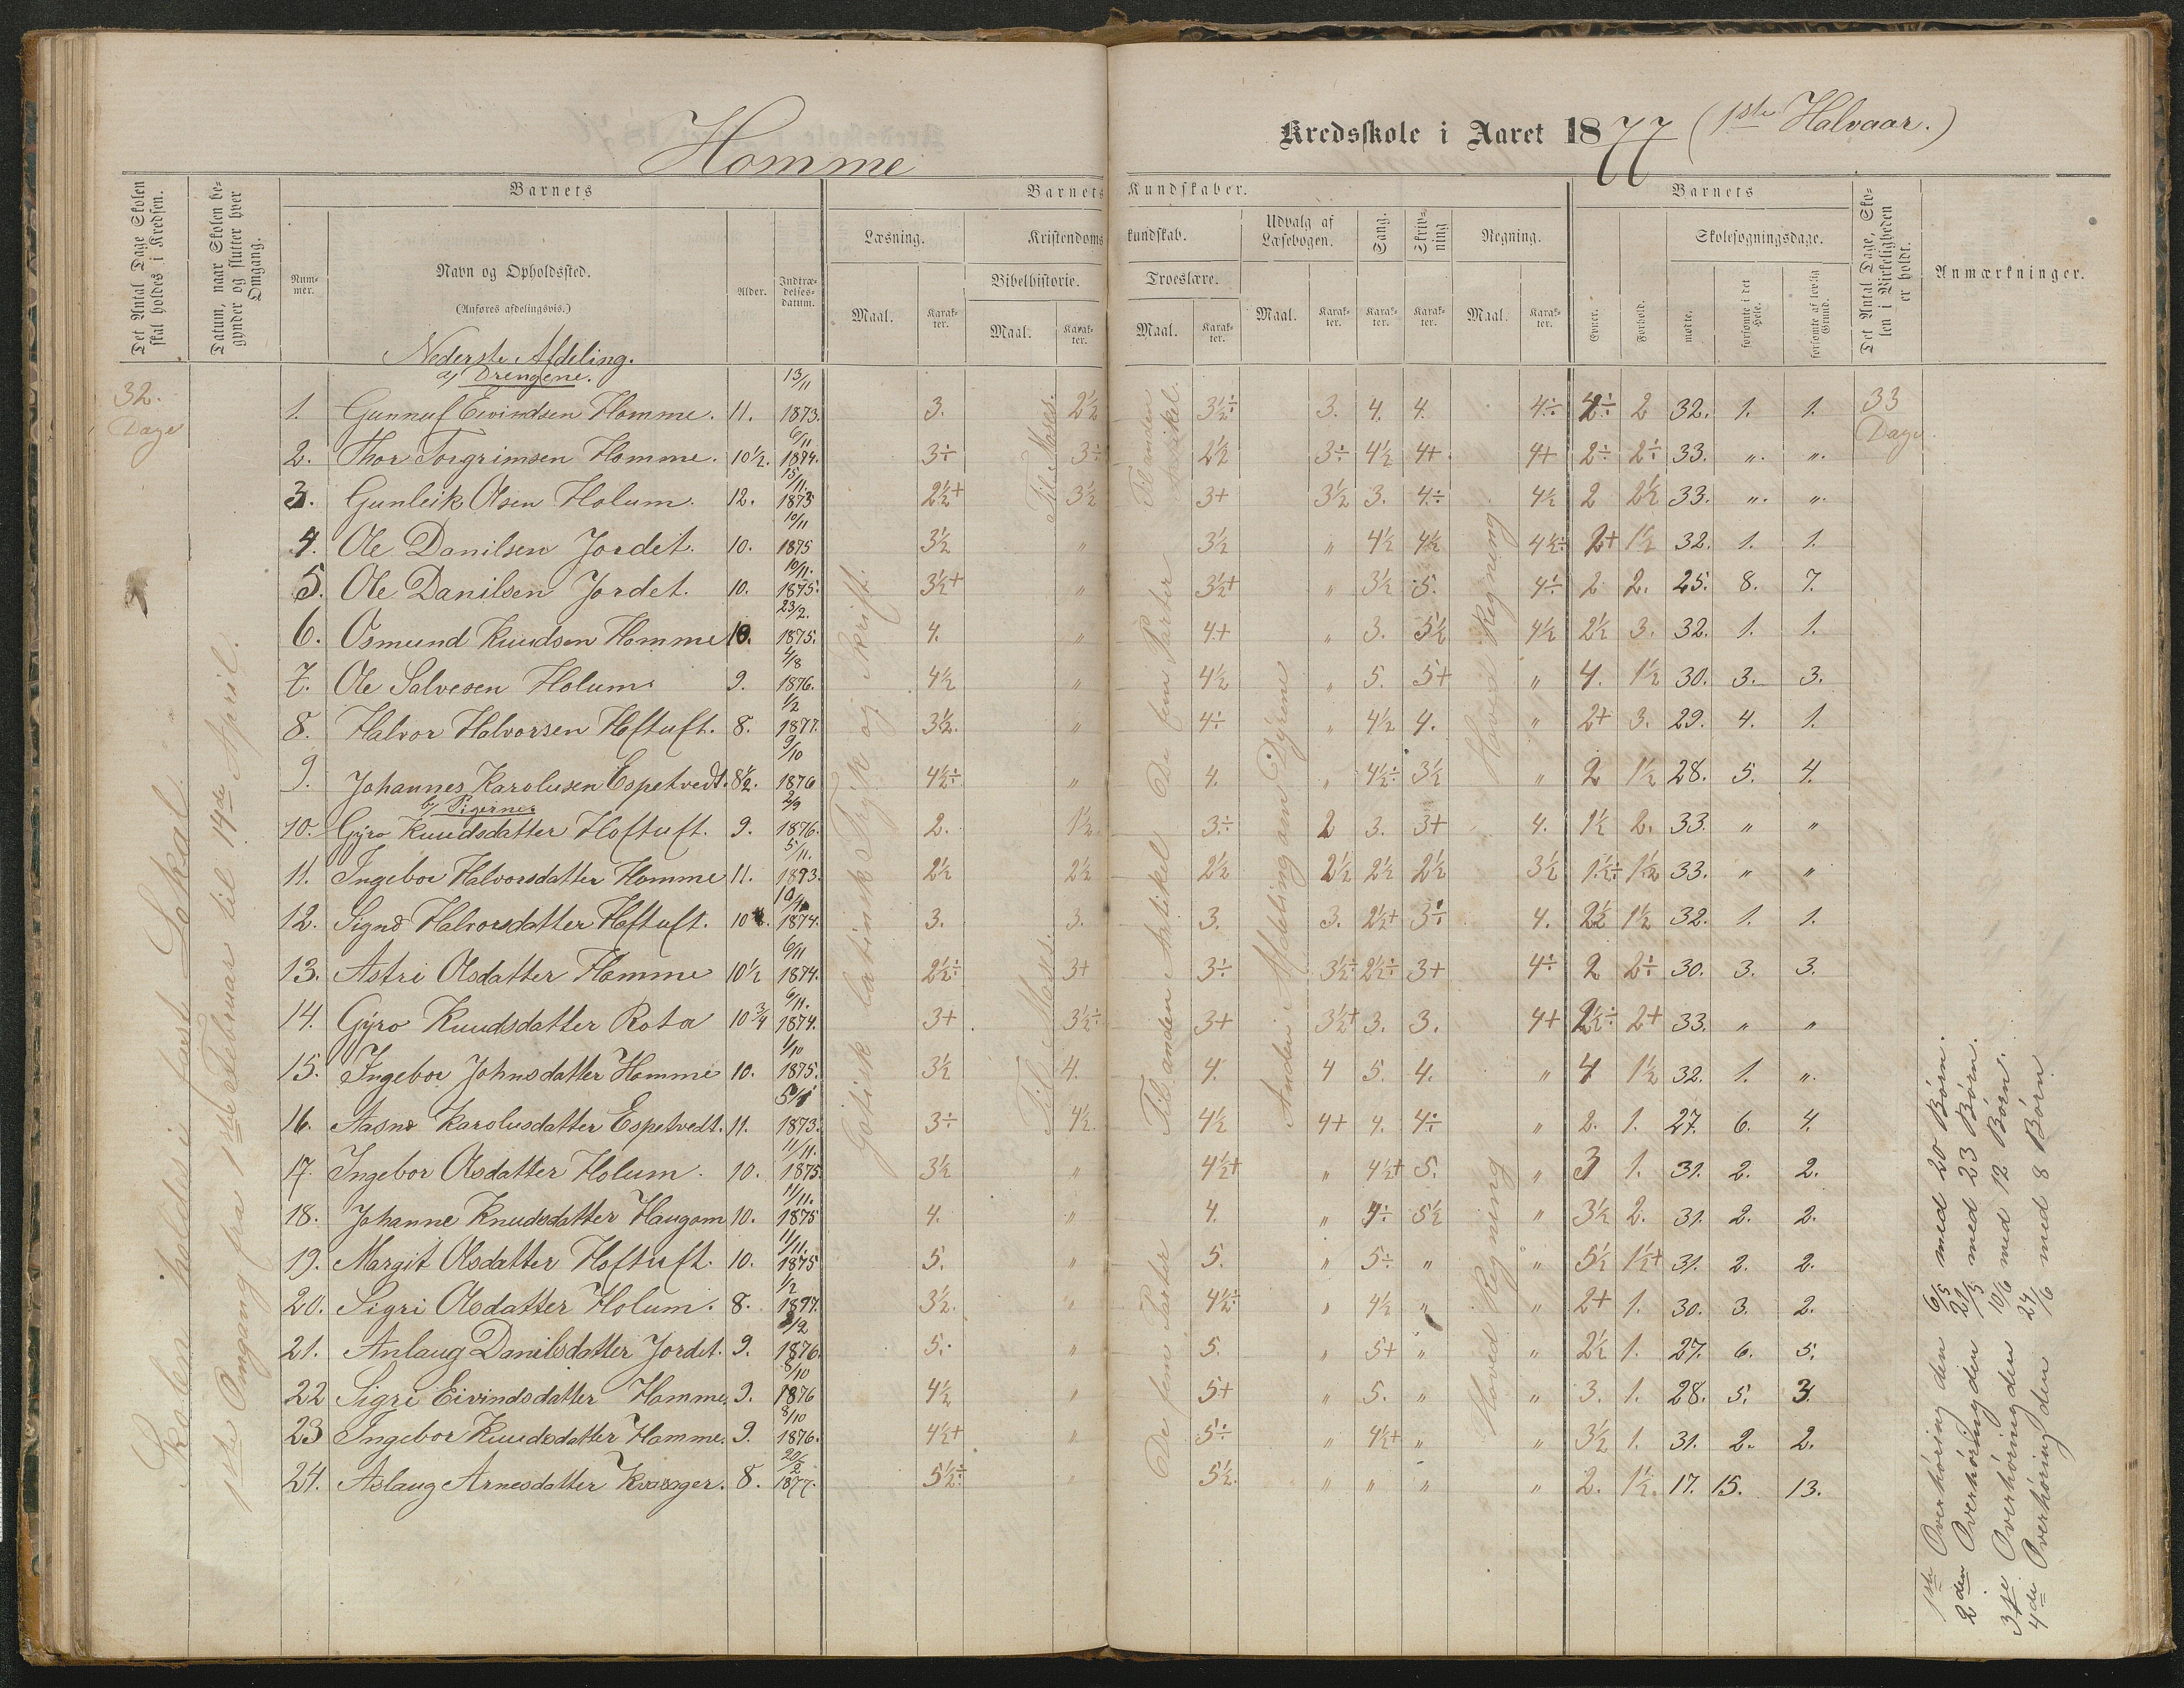 Homme
Kredsskole i Aaret 1877 (1ste Halvaar.)
Det Antal Dage Skolen skal holdes i Kredsen.
Datum, naar Skolen begynder og slutter hver Omgang.
Barnets
Barnets Kundskaber.
Barnets
Det Antal Dage, Skolen i Virkeligheden er holdt.
Anmærkninger.
Nummer.
Navn og Opholdssted.
(Anføres afdelingsvis.)
Alder.
Indtrædelsesdatum.
Læsning.
Kristendomskundskab.
Udvalg af Læsebogen.
Sang.
Skrivning
Regning.
Evner.
Forhold.
Skolesøgningsdage.
Bibelhistorie.
Troeslære.
Maal. Karakter. Maal. Karakter. Maal. Karakter. Maal. Karakter. Karakter. Karakter. Maal. Karakter.
mødte. forsømte i det Hele. forsømte af lovlig Grund.
Nederste Afdeling.
a) Drengene.
32. Dage
33 Dage
1. Gunnuf Eivindsen Homme. 11. 13/11 1873. 3. 2½ 3½÷ 3. 4. 4. 4÷ 2÷ 2 32. 1. 1.
2. Thor Torgrimsen Homme. 10½. 6/11 1874. 3÷ 3÷ 2½ 3÷ 4½ 4+ 4+ 2÷ 2÷ 33. „ „
3. Gunleik Olsen Holum. 12. 15/11 1873 2½+ 3½ 3+ 3½ 3. 4÷ 4½ 2 2½ 33. „ „
4. Ole Danilsen Jordet. 10. 10/11 1875 3½ „ 3½ „ 4½ 4½ 4½÷ 2+ 1½ 32. 1. 1.
5. Ole Danilsen Jordet. 10. 10/11 1875. 3½+ „ 3½+ „ 3½ 5. 4÷ 2 2. 25. 8. 7.
6. Osmund Knudsen Homme 10. 23/2 1875. 4. „ 4+ „ 3. 5½ 4½ 2½ 3. 32. 1. 1.
7. Ole Salvesen Holum. 9. 4/8 1876. 4½ „ 4½ „ 5. 5+ „ 4. 1½ 30. 3. 3.
8. Halvor Halvorsen Hoftuft. 8. 1/2 1877. 3½. „ 4÷ „ 4½ 4. „ 2+ 3. 29. 4. 1.
9. Johannes Karolusen Espetvedt. 8½. 9/10 1876 4½÷ „ 4. „ 4½÷ 3½ „ 2 1½ 28. 5. 4.
b) Pigerne
10. Gyro Knudsdatter Hoftuft. 9. 2/9 1876. 2. 1½ 3÷ 2 3. 3+ 4. 1½ 2. 33. „ „
11. Ingebor Halvorsdatter Homme 11. 5/11 1873. 2½ 2½ 2½ 2½ 2½ 2½ 3½ 1½÷ 1½ 33. „ „
12. Signe Halvorsdatter Hoftuft. 10 1874. 3. 3. 3. 3. 2½+ 3÷ 4. 2½ 1½ 32. 1. 1.
13. Astri Olsdatter Homme 10½ 6/11 1874. 2½÷ 3+ 3÷ 3½÷ 2½÷ 3+ 4÷ 2 2÷ 30. 3. 3.
14. Gyro Knudsdatter Rota 10¾ 6/11 1874. 3+ 3½÷ 3+ 3½+ 3. 3. 4+ 2½÷ 2+ 33. „ „
15. Ingebor Johnsdatter Homme 10. 1/10 1875. 3½ 4. 4. 4 5. 4. „ 4 1½ 32. 1. „
16. Aasne Karolusdatter Espetvedt. 11. 5/11 1873. 3÷ 4½. 4½ 4+ 4. 4÷ „ 2. 1. 27. 6. 4.
17. Ingebor Olsdatter Holum. 10. 11/11 1875. 3½ „ 4½+ „ 4½+ 5. „ 3 1. 31. 2. 2.
18. Johanne Knudsdatter Haugom 10. 11/11 1875 4. „ 4. „ 4÷ 5½ „ 3½ 2. 31. 2. 2.
19. Margit Olsdatter Hoftuft. 10. 11/11 1875 5. „ 5. „ 5÷ „ „ 5½ 1½+ 31. 2. 2.
20. Sigri Olsdatter Holum. 8. 1/2 1877. 3½. „ 4½÷ „ 4½ „ „ 2+ 1. 30. 3. 2.
21. Anlaug Danilsdatter Jordet. 9. 1876. 5. „ 5. „ 5+ „ „ 2½ 1. 27. 6. 5.
22 Sigri Eivindsdatter Homme. 9. 8/10 1876 4½ „ 5+ „ 5. „ „ 3. 1. 28. 5. 3.
23 Ingebor Knudsdatter Homme. 9. 8/10 1876. 4½+ „ 5÷ „ 4½+ „ „ 3½ 1. 31. 2. 2.
24. Aslaug Arnesdatter 8. 20/2 1877. 5½÷ „ 5½. „ „ „ „ 2. 1½. 17. 15. 13.
Skolen holdes i fast Lokal.
1ste Omgang fra 1ste Februar til 14de April.
Gotisk latinsk Tryk og Skrift.
Til Moses.
Til Moses.
Til anden Artikel.
De fem Parter
Til anden Artikel
De fem Parter
Anden Afdeling om Dyrene
Hoved Regning
Hoved Regning
1ste Overhøring den 6/5 med 20 Børn.
2den Overhøring den 27/5 med 23 Børn.
3die Overhøring den 10/6 med 12 Børn.
4de Overhøring den 24/6 med 8 Børn